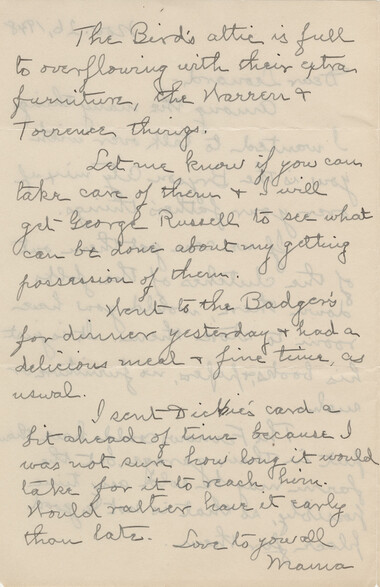 The Bird's attic is full
to overflowing with their extra
furniture, the Warren &
Torrence things.
Let me know if you can
take care of them & I will
get George Russell to see what
can be done about my getting
possession of them.
Went to the Badger's
for dinner yesterday & had a
delicious meal & fine time, as
usual.
I sent Dickie's card a
bit ahead of time because I
was not sure how long it would
take for it to reach him.
Would rather have it early
than late.
Love to you all
Mama